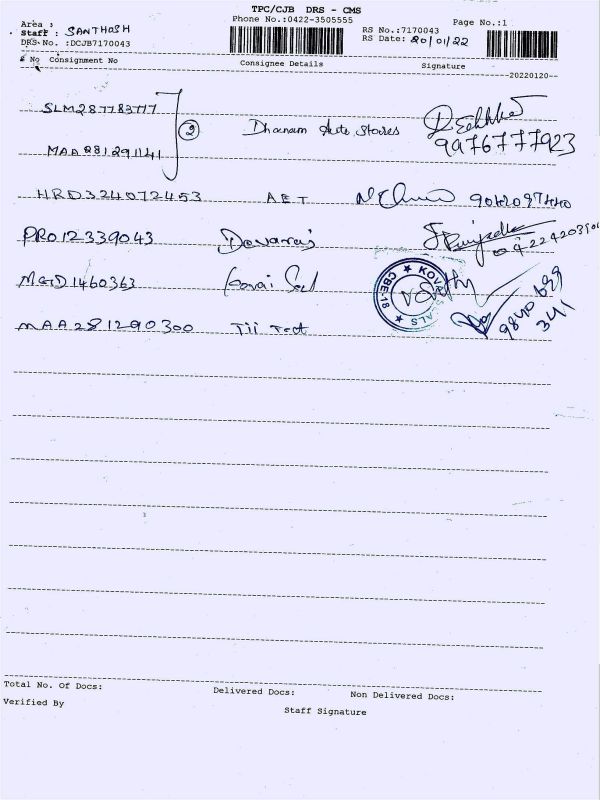 TPC/CJB DRS - CMS
Phone No.:0422-3505555
Page No.:1
Area :
Staff : SANTHOSH
DRS No. :DCJB7170043
RS No.:7170043
RS Date: 20/01/22
No Consignment No Consignee Details Signature
20220120
SLM287783717
② Dhanam Auto Stores
9976777923
MAA281291141
HRD324072453 AET
PRO12339043 Devaraj
MGD1460363 Kovai Seal
KOVAI SEALS CBE18
MAA281290300 TII Tect
9840 699
341
Total No. Of Docs: Delivered Docs: Non Delivered Docs:
Verified By
Staff Signature